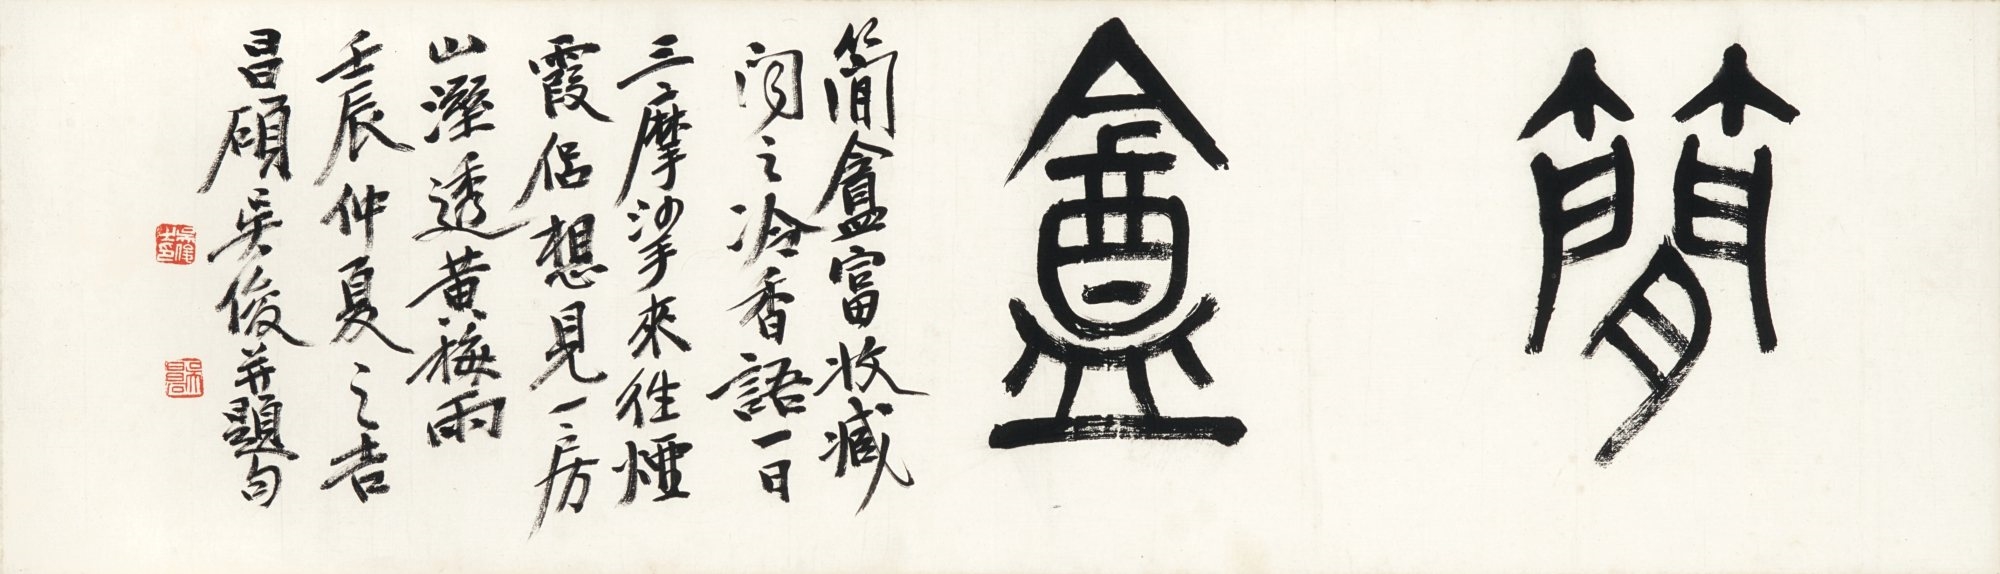 簡盦
簡盦富收藏
問之冷香語一日
三摩挲來往煙
霞侶想見一房
山溼透黃梅雨
壬辰仲夏之吉
昌碩吳俊并題句